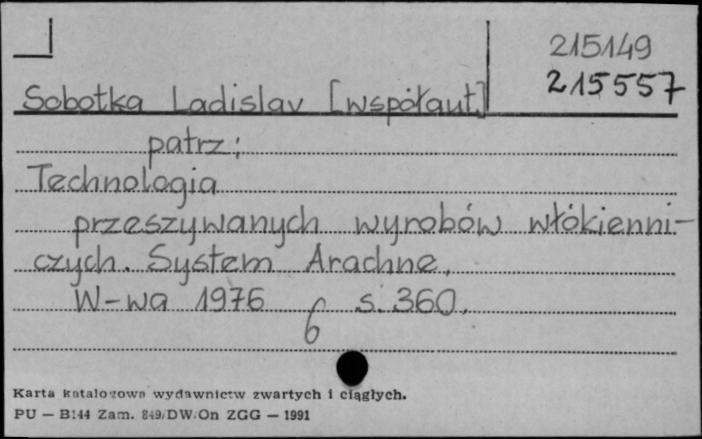 215149
215557
Sobotka Ladislav [współaut.]
patrz:
Technologia
przeszywanych wyrobów włókienni-
czych. System Arachne.
W-wa 1976 s. 360.
6
Karta katalogowa wydawnictw zwartych i ciągłych.
PU — B144 Zam. 849/DW/On ZGG — 1991